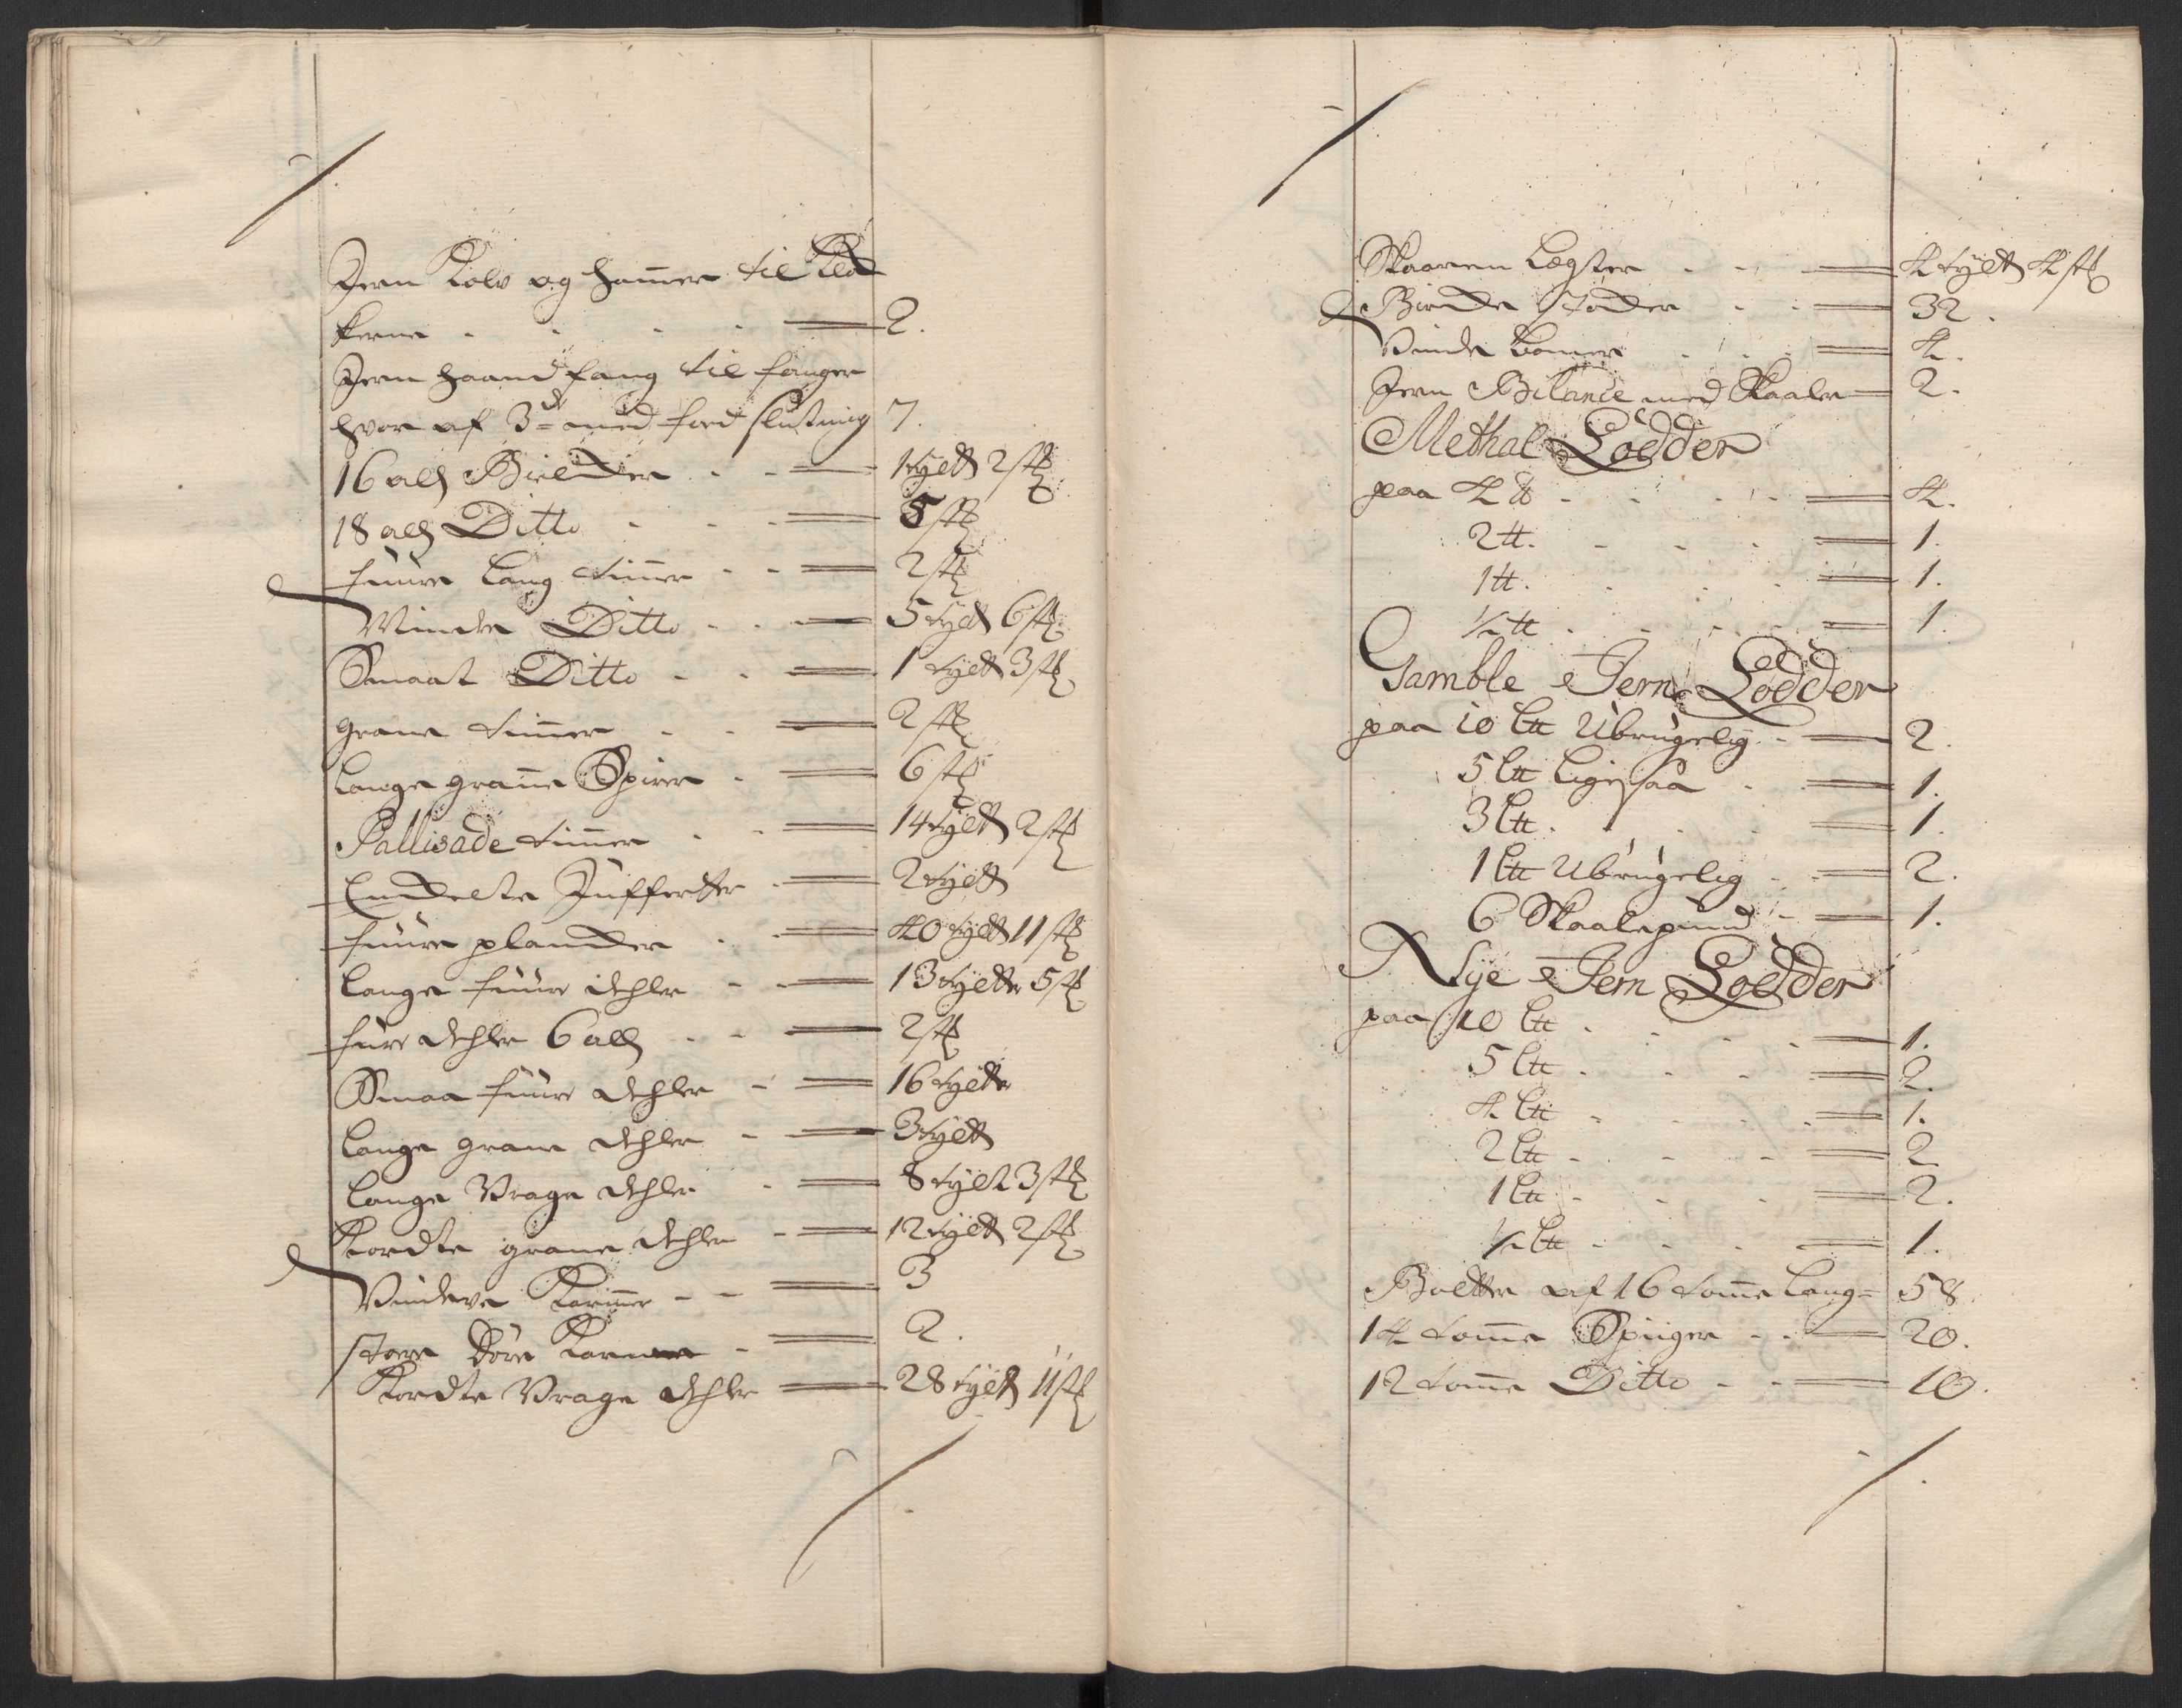 Jern Kolv og hammer til Klo
kerne - - - - 2.
Jern haand fang til fanger
hvor af 3de med ford slutning 7.
16 all Bielcker - - 1 tylt 2 stk
18 all Ditto - - - 5 stk
fuure Lang timer - - 2 stk
Mindre Ditto - - 5 tylt 6 stk
Smaat Ditto - - 1 tylt 3 stk
grane timer - - 2 stk
Lange grane Spirer - 6 stk
Pallisade timer - - 14 tylt 2 stk
Juffertter - 2 tylt
fuure plancker - - 40 tylt 11 stk
Lange fuure dehler - - 13 tylter 5 stk
fure dehler 6 all - - 2 stk
Smaa fuure dehler - 16 tylter
Lange grane dehler - 3 tylt
Lange Vrage dehler - 8 tylt 3 stk
Kordte grane dehler - 12 tylt 2 stk
Vindues Karmer - - 3
store Döre Karme - 2.
Kordte Vrage dehler 28 tylt 11 stk
Skaaren Legter - - 4 tylt 4 stk
Binde stöcker - - 32.
Vinde bomer - - 4.
Jern Bilance med Skaaler 2.
Methal Lodder
paa 4 tt - - - - 4.
2 tt. - - - 1.
1 tt. - - - 1.
1/2 tt - - - - 1.
Gamble Jern Lodder
paa 10 Ltt Ubrugelig - 2.
5 Ltt ligesaa - 1.
3 Ltt. - - - 1.
1 Ltt Ubrugelig - 2.
6 Skaalepund - 1.
Nye Jern Lodder
paa 10 Ltt - - - 1.
5 Ltt - - - 2.
4 Ltt - - - 1.
2 Ltt - - - 2
1 Ltt - - - 2.
1/2 Ltt - - - 1.
Boltter af 16 tomme Lang = 58.
14 tomme Spiiger - - 20.
12 tomme Ditto - - 10.